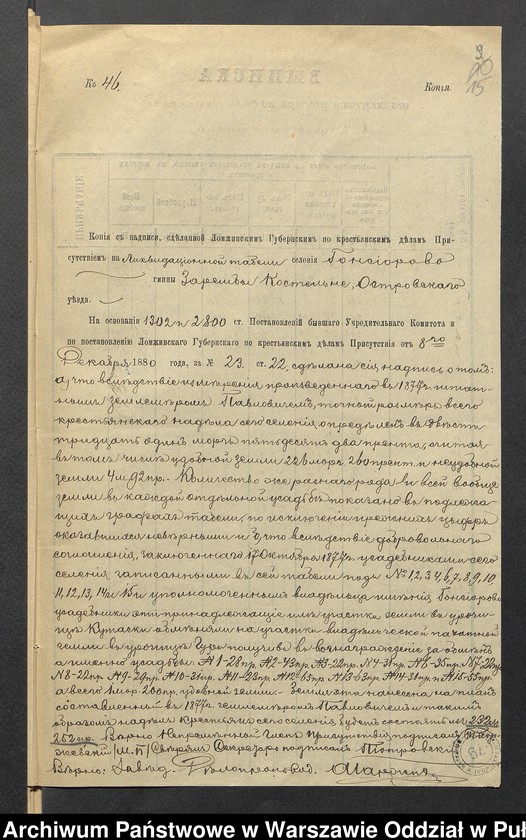 9
20
15
Къ 46.
Копія.
Копія съ надписи, сдѣланной Ломжинскимъ Губернскимъ по крестьянскимъ дѣламъ При-
сутствіемъ на Ликвидаціонной табели селенія Гонсіорово
гмины Зарембы Костельне, Островскаго
уѣзда.
На основаніи 1302 и 2800 ст. Постановленій бывшаго Учредительнаго Комитета и
по постановленію Ломжинскаго Губернскаго по крестьянскимъ дѣламъ Присутствія отъ 8го
Декабря 1880 года, за № 23. ст. 22, сдѣлана сія надпись о томъ:
а, что вслѣдствіе измѣренія произведеннаго въ 1877г. штат-
нымъ землемѣромъ Павловичемъ, точный размѣръ всего
крестьянскаго надѣла сего селенія опредѣленъ въ двѣсти
тридцать одинъ морг. пятьдесятъ два прента, считая
въ томъ числѣ удобной земли 226 морг. 260 прент. и неудобной
земли 4 м. 92 пр. Количество же разнаго рода и всей вообще
земли въ каждой отдѣльной усадьбѣ показано въ подлежа-
щихъ графахъ табели, по исключеніи прежнихъ цифръ
оказавшихся невѣрными и б, что вслѣдствіе добровольнаго
соглашенія, заключеннаго 17 Октября 1877г. усадебниками сего
селенія записанными въ сей табели подъ № 1, 2, 3, 4, 6, 7, 8, 9, 10,
11, 12, 13, 14 и 15 и уполномоченнымъ владѣльца имѣнія Гонсіорово
усадебники эти принадлежащіе имъ участки земли въ урочи-
щѣ Кутаски обмѣняли на участки владѣльческой пахатной
земли въ урочищѣ получивъ въ вознагражденіе за обмѣнъ
а именно усадьбы: № 1-28 пр. № 2-43 пр. № 3-22 пр. № 4-31 пр. № 6-35 пр. № 7-28 пр.
№ 8-22 пр. № 9-24 пр. № 10-21 пр. № 11-28 пр. № 12-65 пр. № 13-63 пр. № 14-31 пр. и № 15-55 пр.
а всего 1 мор. 200 пр. удобной земли. Земля эта нанесена на планъ
составленный въ 1877г. землемѣромъ Павловичемъ и такимъ
образомъ надѣлъ крестьянъ сего селенія будетъ состоять изъ 232 м.
252 пр. Вѣрно Непремѣнный Членъ Присутствія подписалъ
/М. П./ Скрѣпилъ Секретарь подписалъ Піотровскій
Вѣрно: Завѣд. Дѣлопроизвод.
Archiwum Państwowe w Warszawie Oddział w Puł